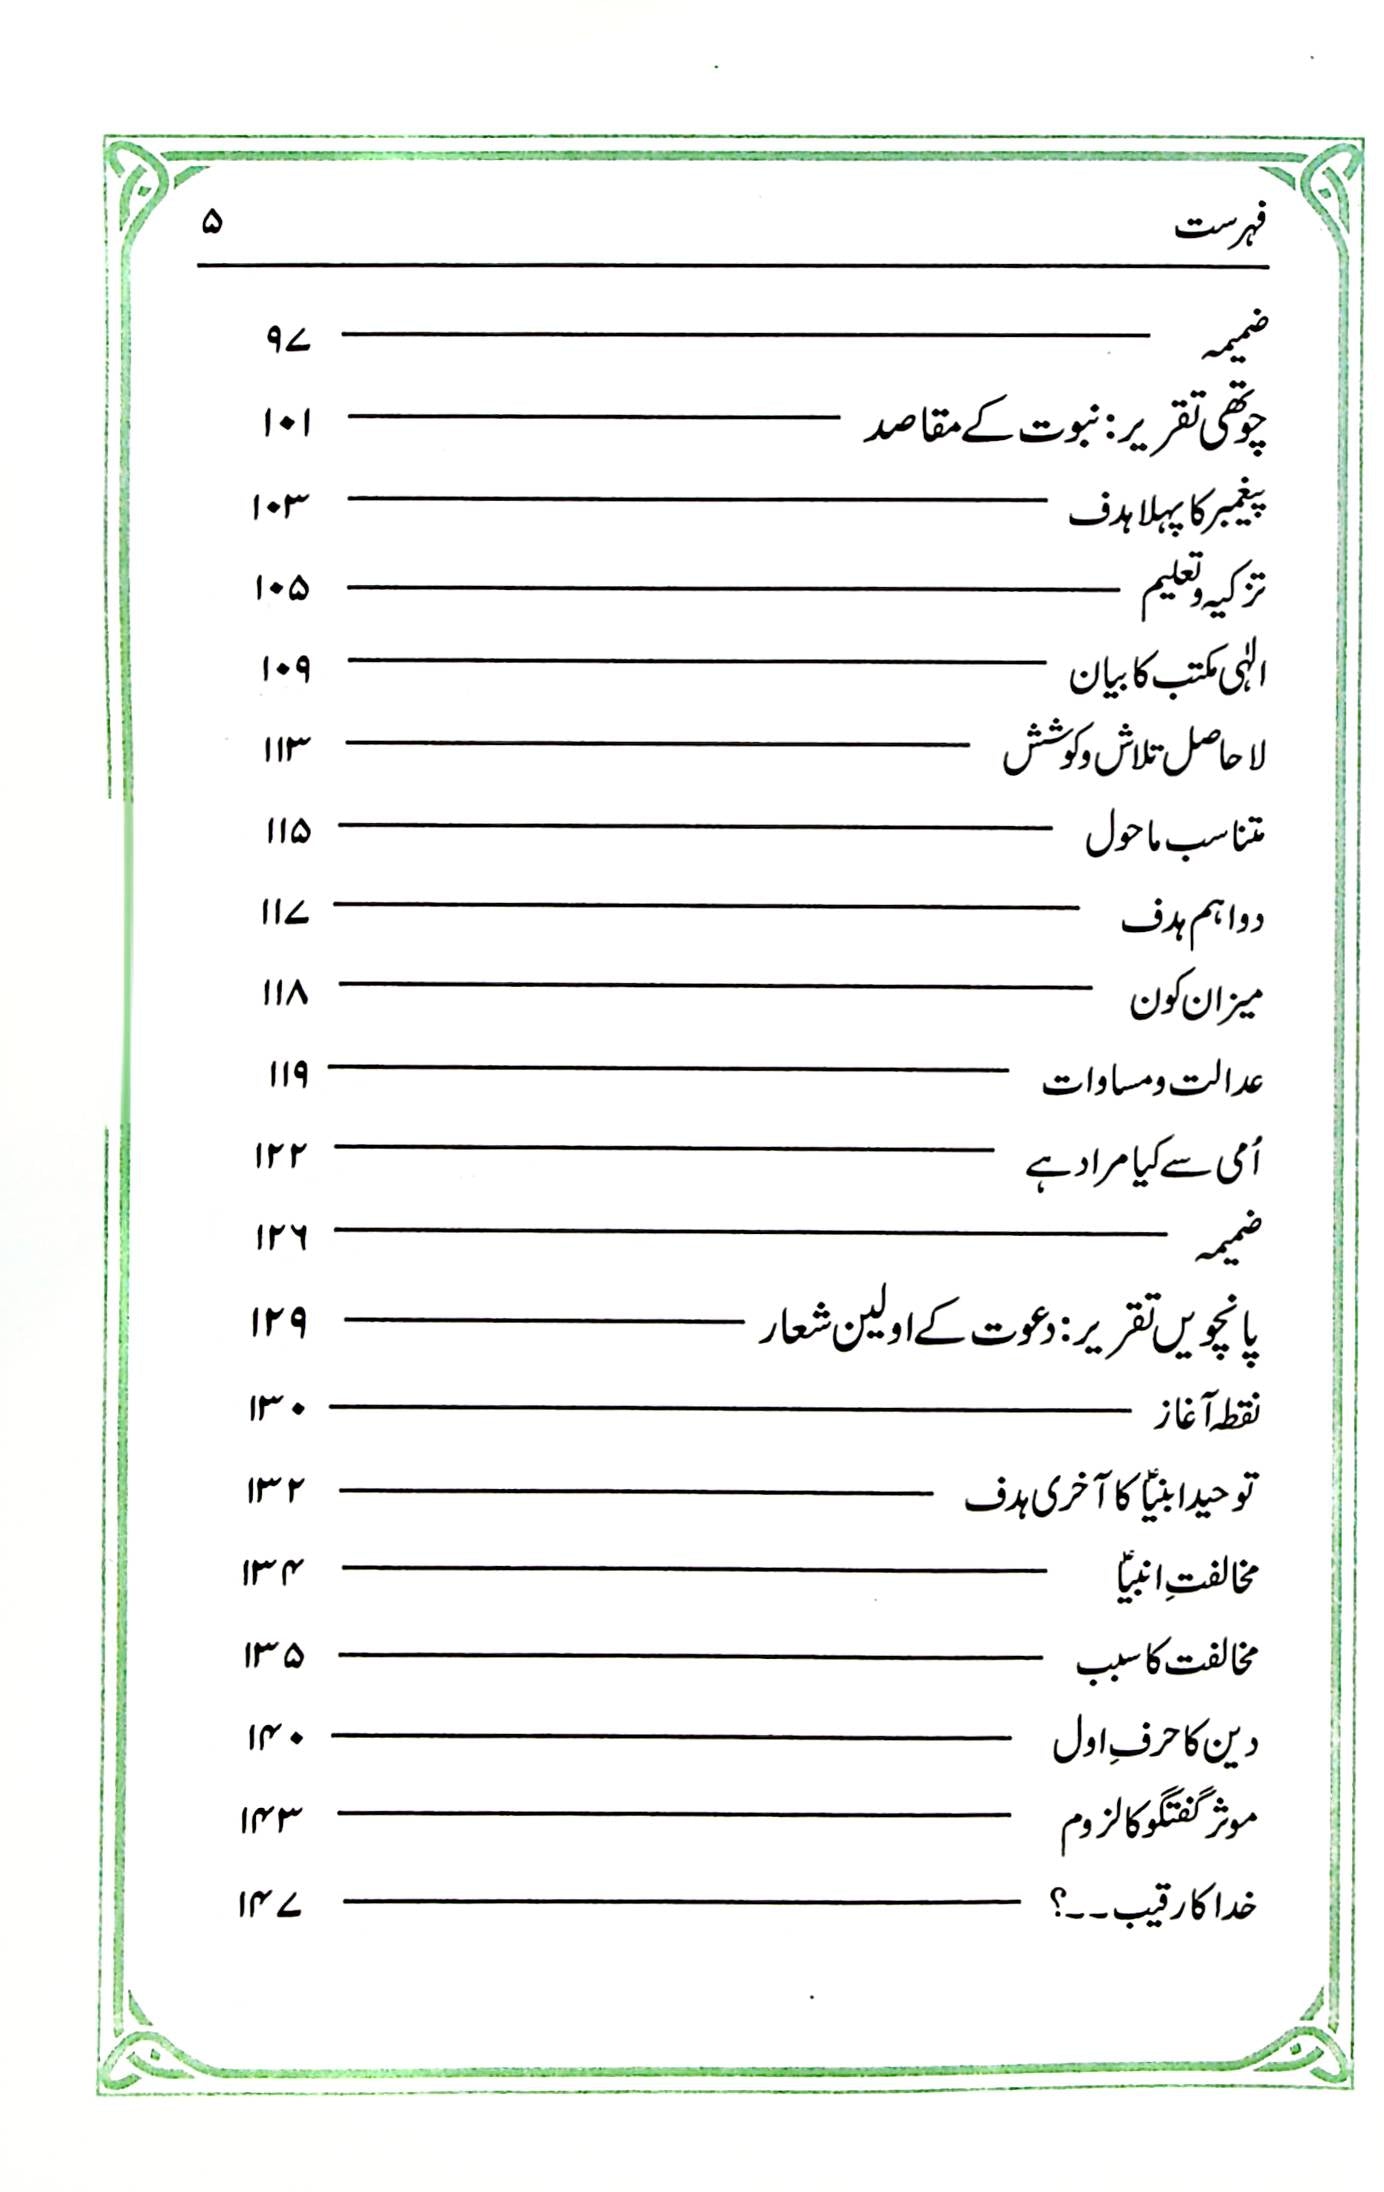 فہرست ۵
ضمیمہ ۹۷
چوتھی تقریر: نبوت کے مقاصد ۱۰۱
پیغمبر کا پہلا ہدف ۱۰۳
تزکیہ و تعلیم ۱۰۵
الٰہی مکتب کا بیان ۱۰۹
لا حاصل تلاش و کوشش ۱۱۳
متناسب ماحول ۱۱۵
دو اہم ہدف ۱۱۷
میزان کون ۱۱۸
عدالت و مساوات ۱۱۹
اُمی سے کیا مراد ہے ۱۲۲
ضمیمہ ۱۲۶
پانچویں تقریر: دعوت کے اولین شعار ۱۲۹
نقطہ آغاز ۱۳۰
توحید انبیاؑ کا آخری ہدف ۱۳۲
مخالفتِ انبیاؑ ۱۳۴
مخالفت کا سبب ۱۳۵
دین کا حرفِ اول ۱۴۰
موثر گفتگو کا لزوم ۱۴۳
خدا کا رقیب ۔۔؟ ۱۴۷